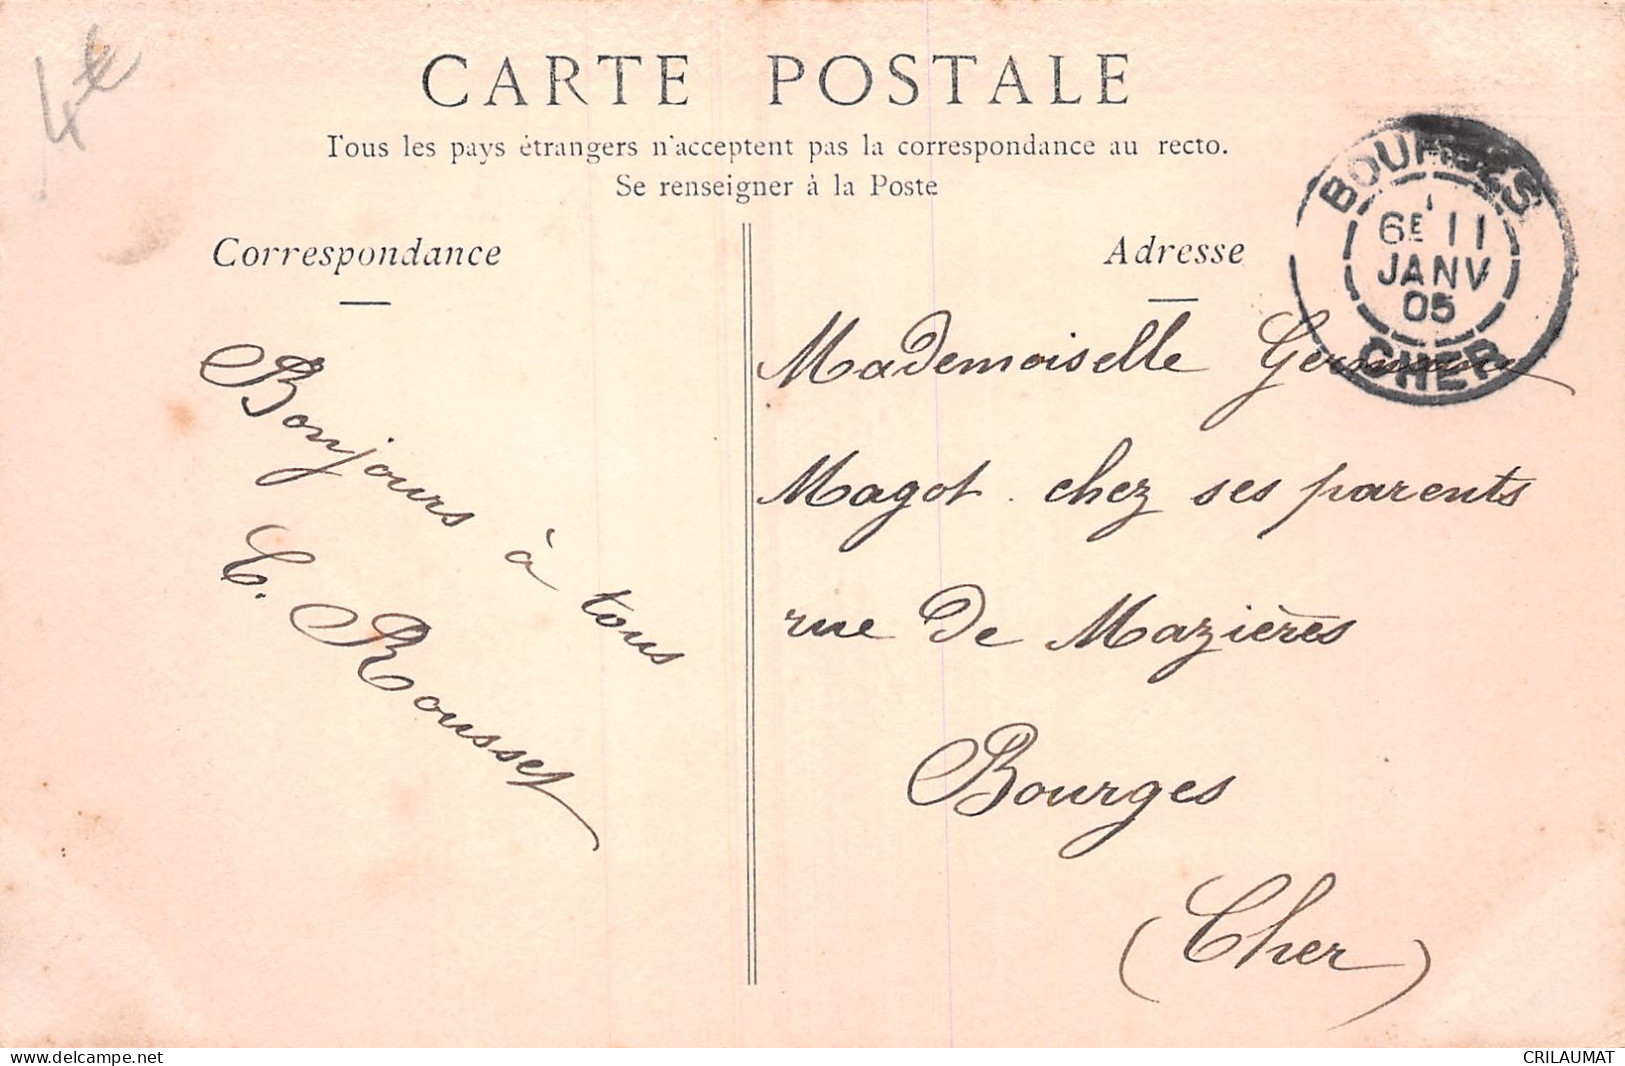 4€
CARTE POSTALE
Tous les pays étrangers n'acceptent pas la correspondance au recto.
Se renseigner à la Poste
Correspondance
Bonjours à tous
C. Rousset
Adresse
BOURGES
6E 11
JANV
05
CHER
Mademoiselle Germaine
Magot. chez ses parents
rue de Mazières
Bourges
(Cher)
www.delcampe.net
CRILAUMAT